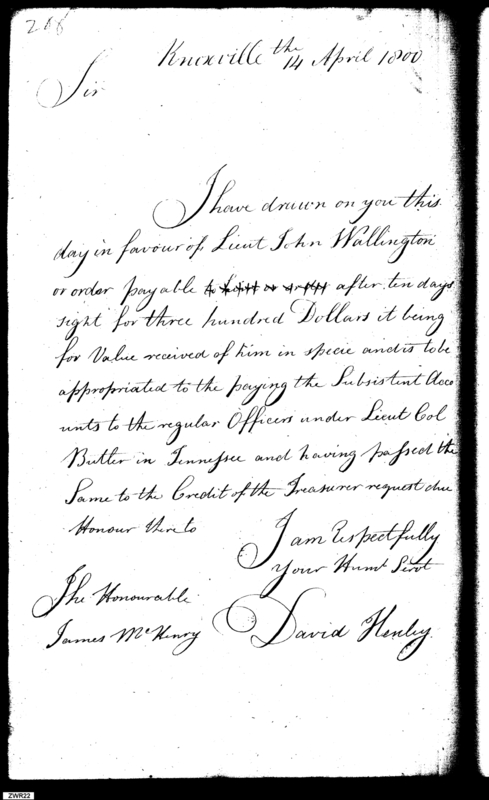 Knoxville the 14 April 1800
Sir
I have drawn on you this
day in favour of Lieut John Wallington
or order payable after ten days
sight for three hundred Dollars it being
for Value received of him in specie and is to be
appropriated to the paying the Subsistent Acco
unts to the regular Officers under Lieut Col
Butler in Tennessee and having passed the
Same to the Credit of the Treasurer request due
Honour there to
I am Respectfully
Your Humt Servt
The Honourable
James McHenry
David Henley
ZWR22